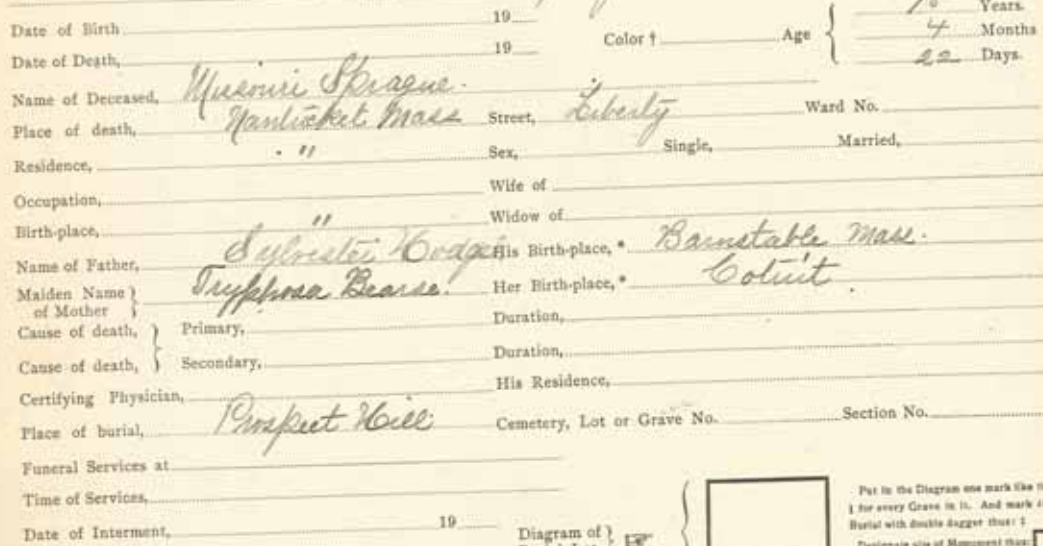 Date of Birth 19 Years.
Date of Death, 19 Color † Age { 4 Months
22 Days.
Name of Deceased, Missouri Sprague.
Place of death, Nantucket Mass Street, Liberty Ward No.
Residence, " Sex, Single, Married,
Occupation, Wife of
Birth-place, " Widow of
Name of Father, Sylvester Hodges His Birth-place, * Barnstable Mass.
Maiden Name } of Mother Tryphosa Bearse. Her Birth-place, * Cotuit.
Cause of death, } Primary, Duration,
Cause of death, } Secondary, Duration,
Certifying Physician, His Residence,
Place of burial, Prospect Hill Cemetery, Lot or Grave No. Section No.
Funeral Services at
Time of Services,
Date of Interment, 19 Diagram of }
Put in the Diagram one mark like
for every Grave in it. And mark
Burial with double dagger thus: ‡
Designate site of Monument thus: